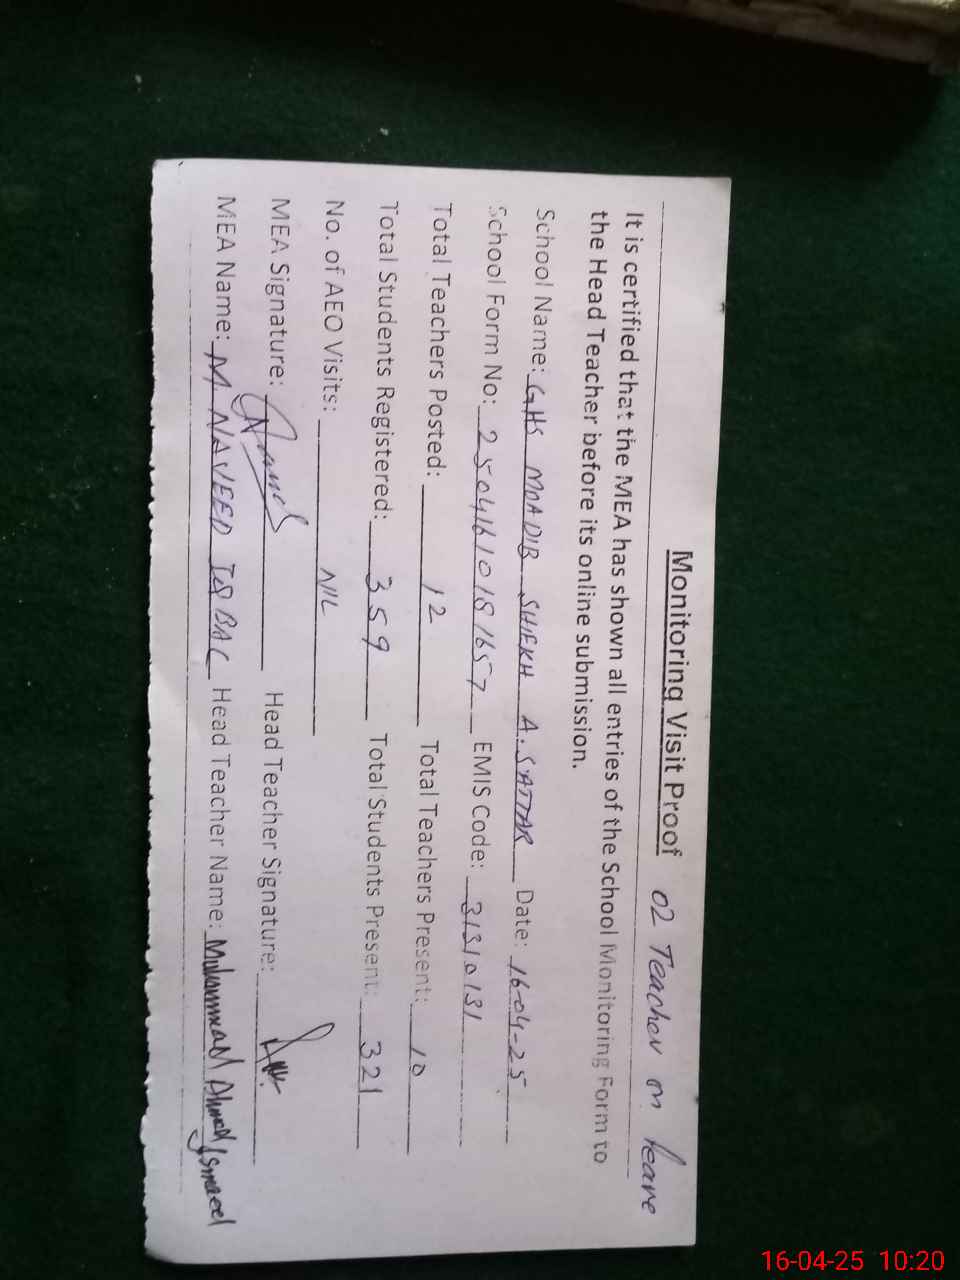 Monitoring Visit Proof 02 Teacher on leave
It is certified that the MEA has shown all entries of the School Monitoring Form to
the Head Teacher before its online submission.
School Name: GHS MOADIB SHIEKH A. SATTAR Date: 16-04-25
School Form No: 25041610181657 EMIS Code: 31310131
Total Teachers Posted: 12 Total Teachers Present: 10
Total Students Registered: 359 Total Students Present: 321
No. of AEO Visits: NIL
MEA Signature: Head Teacher Signature:
MEA Name: M NAVEED IQBAL Head Teacher Name: Muhammad Ahmad Ismaeel
16-04-25 10:20